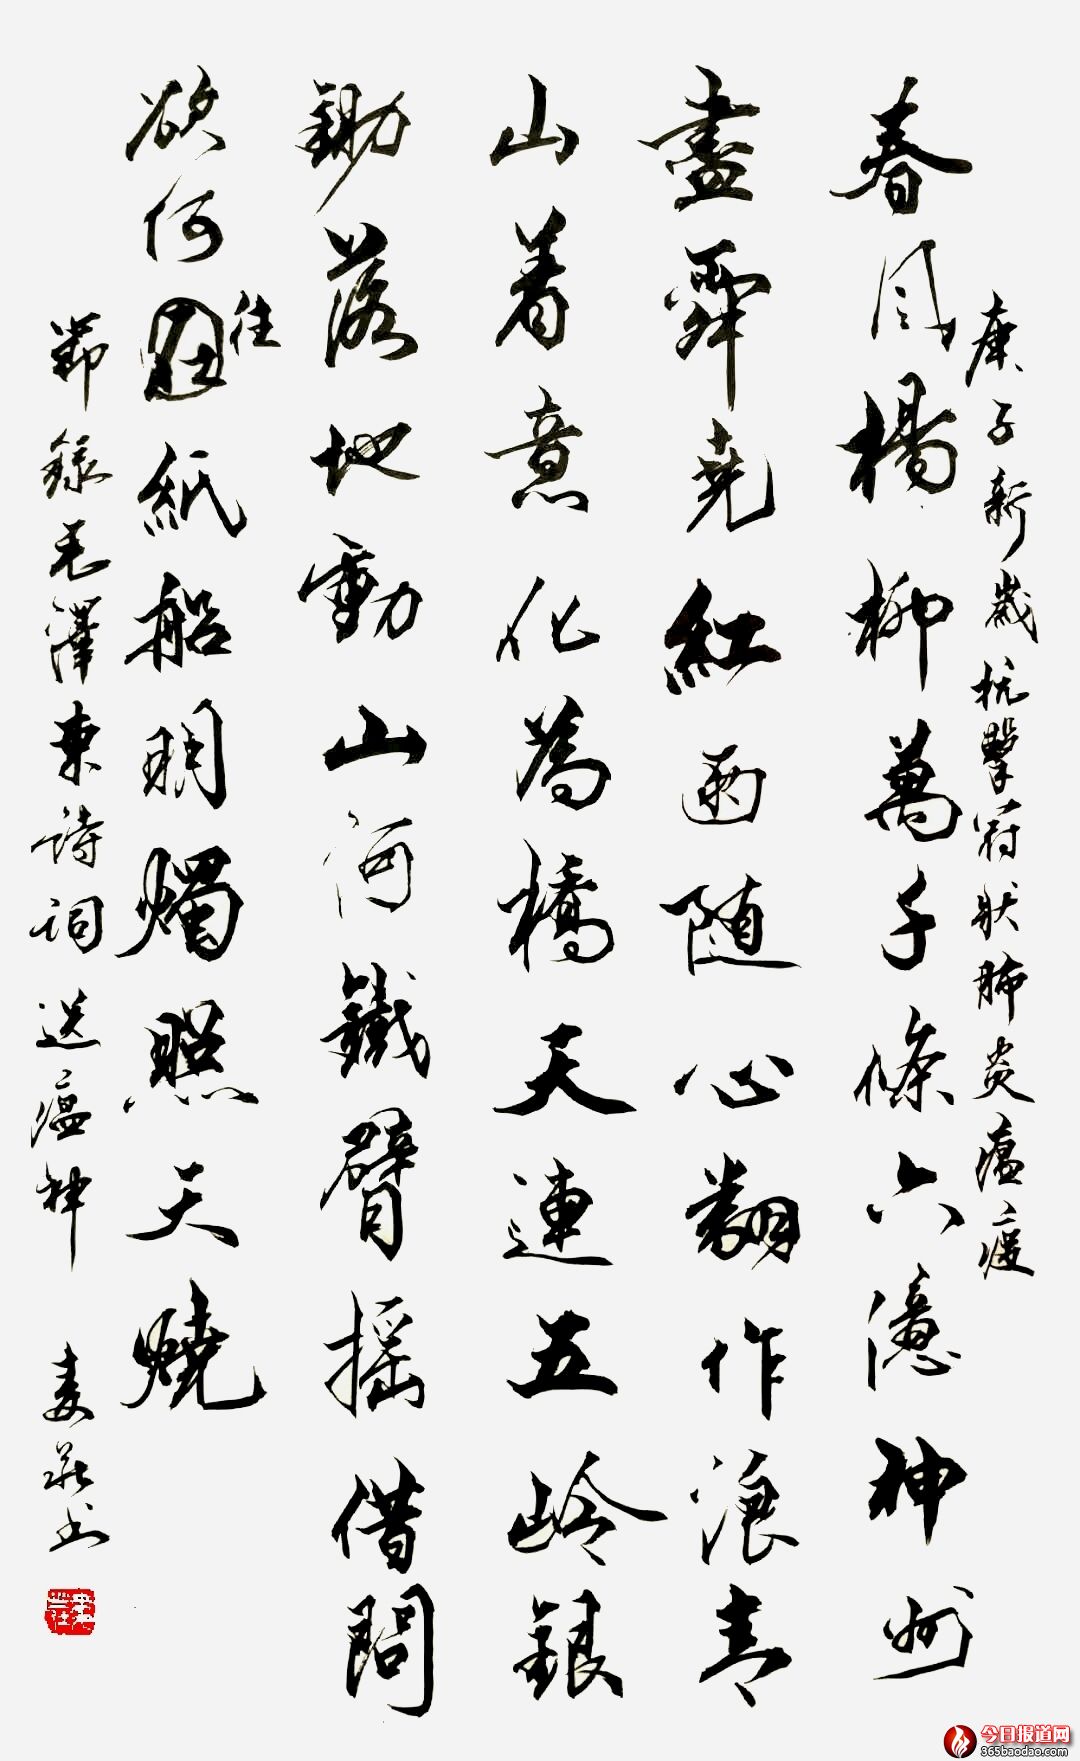 庚子新歲抗擊冠狀肺炎瘟疫
春風楊柳萬千條六億神州
盡舜堯紅雨随心翻作浪青
山着意化為橋天連五岭銀
鋤落地動山河鐵臂摇借問
欲何往紙船明燭照天燒
節錄毛澤東詩詞送瘟神
今日报道网
365baodao.com